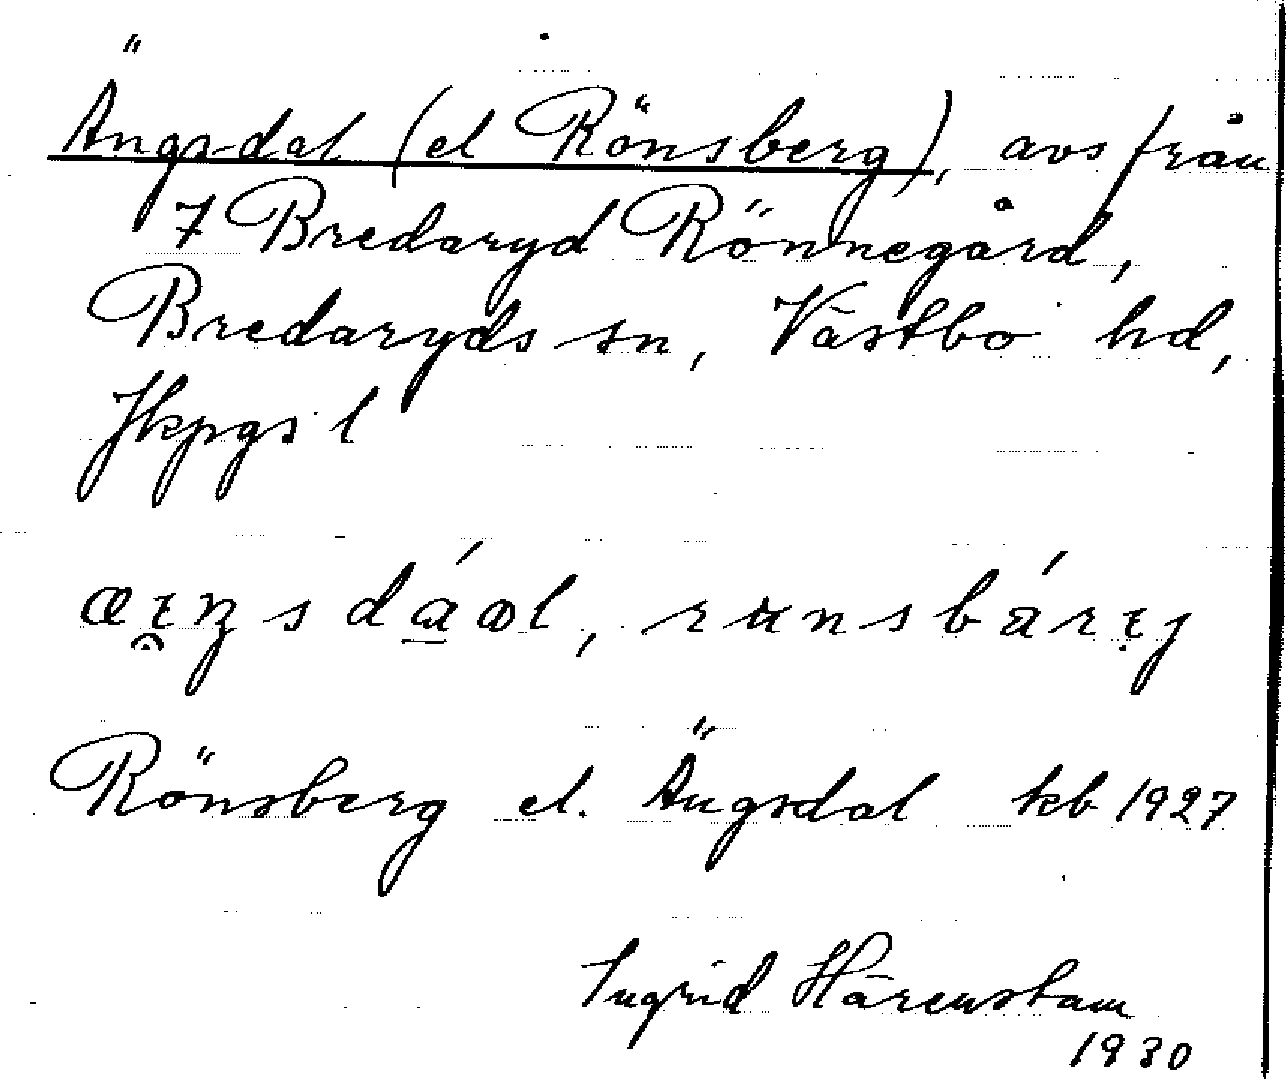 Ängsdal (el Rönsberg), avs från
7 Bredaryd Rönnegård,
Bredaryds sn, Västbo hd,
Jkpgs l
Rönsberg el. Ängsdal kb 1927
Ingrid Härenstam
1930